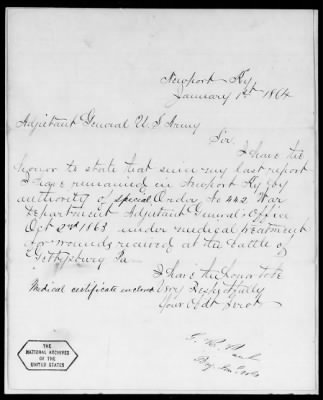 Newport Ky.
January 1st 1864
Adjutant General U S Army
Sir.
I have the
honor to state that since my last report
I have remained in Newport Ky. by
authority of Special Order No 442 War
Department Adjutant General's Office
Oct 2nd 1863 under medical treatment
for wounds received at the battle of
Gettysburg Pa
I have the honor to be
Medical certificate enclosed
Very Respectfully
Your Obdt Servt
THE
NATIONAL ARCHIVES
OF THE
UNITED STATES